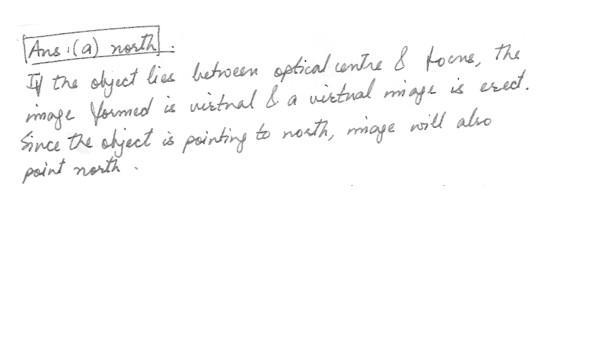 Ans :(a) north.
If the object lies between optical centre & focus, the
image formed is virtual & a virtual image is erect.
Since the object is pointing to north, image will also
point north.